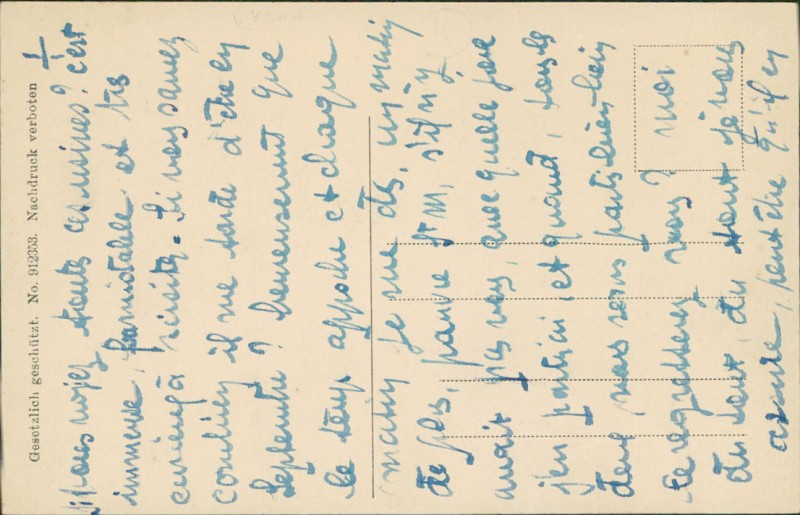 Gesetzlich geschützt. No. 912353. Nachdruck verboten
1
Si vous voyez toutes ces usines? c'est
immense, formidable et très
à visiter. Si vous savez
combien il me tarde d'être en
Septembre? heureusement que
le temps approche et chaque
matin je me dis, un matin
de plus, pauvre St M, s'il n'y
avait pas vous, avec quelle joie
j'en partirai et quand, tous les
deux nous serons loin
le regretterez vous? moi
du tout, du tout je vous
assure, peut être qu'il en